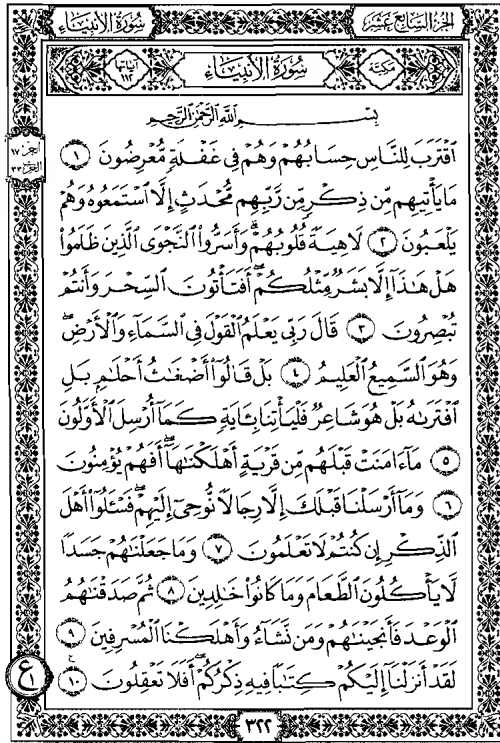 الجزء السابع عشر
سورة الأنبياء
مكية
سُورَةُ الأَنبِيَاءِ
آياتها ١١٢
بِسْمِ اللَّهِ الرَّحْمَٰنِ الرَّحِيمِ
ٱقْتَرَبَ لِلنَّاسِ حِسَابُهُمْ وَهُمْ فِى غَفْلَةٍ مُّعْرِضُونَ ١
مَا يَأْتِيهِم مِّن ذِكْرٍ مِّن رَّبِّهِم مُّحْدَثٍ إِلَّا ٱسْتَمَعُوهُ وَهُمْ
يَلْعَبُونَ ٢ لَاهِيَةً قُلُوبُهُمْ وَأَسَرُّوا۟ ٱلنَّجْوَى ٱلَّذِينَ ظَلَمُوا۟
هَلْ هَٰذَآ إِلَّا بَشَرٌ مِّثْلُكُمْ أَفَتَأْتُونَ ٱلسِّحْرَ وَأَنتُمْ
تُبْصِرُونَ ٣ قَالَ رَبِّى يَعْلَمُ ٱلْقَوْلَ فِى ٱلسَّمَآءِ وَٱلْأَرْضِ
وَهُوَ ٱلسَّمِيعُ ٱلْعَلِيمُ ٤ بَلْ قَالُوٓا۟ أَضْغَٰثُ أَحْلَٰمٍۭ بَلِ
ٱفْتَرَىٰهُ بَلْ هُوَ شَاعِرٌ فَلْيَأْتِنَا بِـَٔايَةٍ كَمَآ أُرْسِلَ ٱلْأَوَّلُونَ
٥ مَآ ءَامَنَتْ قَبْلَهُم مِّن قَرْيَةٍ أَهْلَكْنَٰهَآ أَفَهُمْ يُؤْمِنُونَ
٦ وَمَآ أَرْسَلْنَا قَبْلَكَ إِلَّا رِجَالًا نُّوحِىٓ إِلَيْهِمْ فَسْـَٔلُوٓا۟ أَهْلَ
ٱلذِّكْرِ إِن كُنتُمْ لَا تَعْلَمُونَ ٧ وَمَا جَعَلْنَٰهُمْ جَسَدًا
لَّا يَأْكُلُونَ ٱلطَّعَامَ وَمَا كَانُوا۟ خَٰلِدِينَ ٨ ثُمَّ صَدَقْنَٰهُمُ
ٱلْوَعْدَ فَأَنجَيْنَٰهُمْ وَمَن نَّشَآءُ وَأَهْلَكْنَا ٱلْمُسْرِفِينَ ٩
لَقَدْ أَنزَلْنَآ إِلَيْكُمْ كِتَٰبًا فِيهِ ذِكْرُكُمْ أَفَلَا تَعْقِلُونَ ١٠
ع ١
٣٢٢